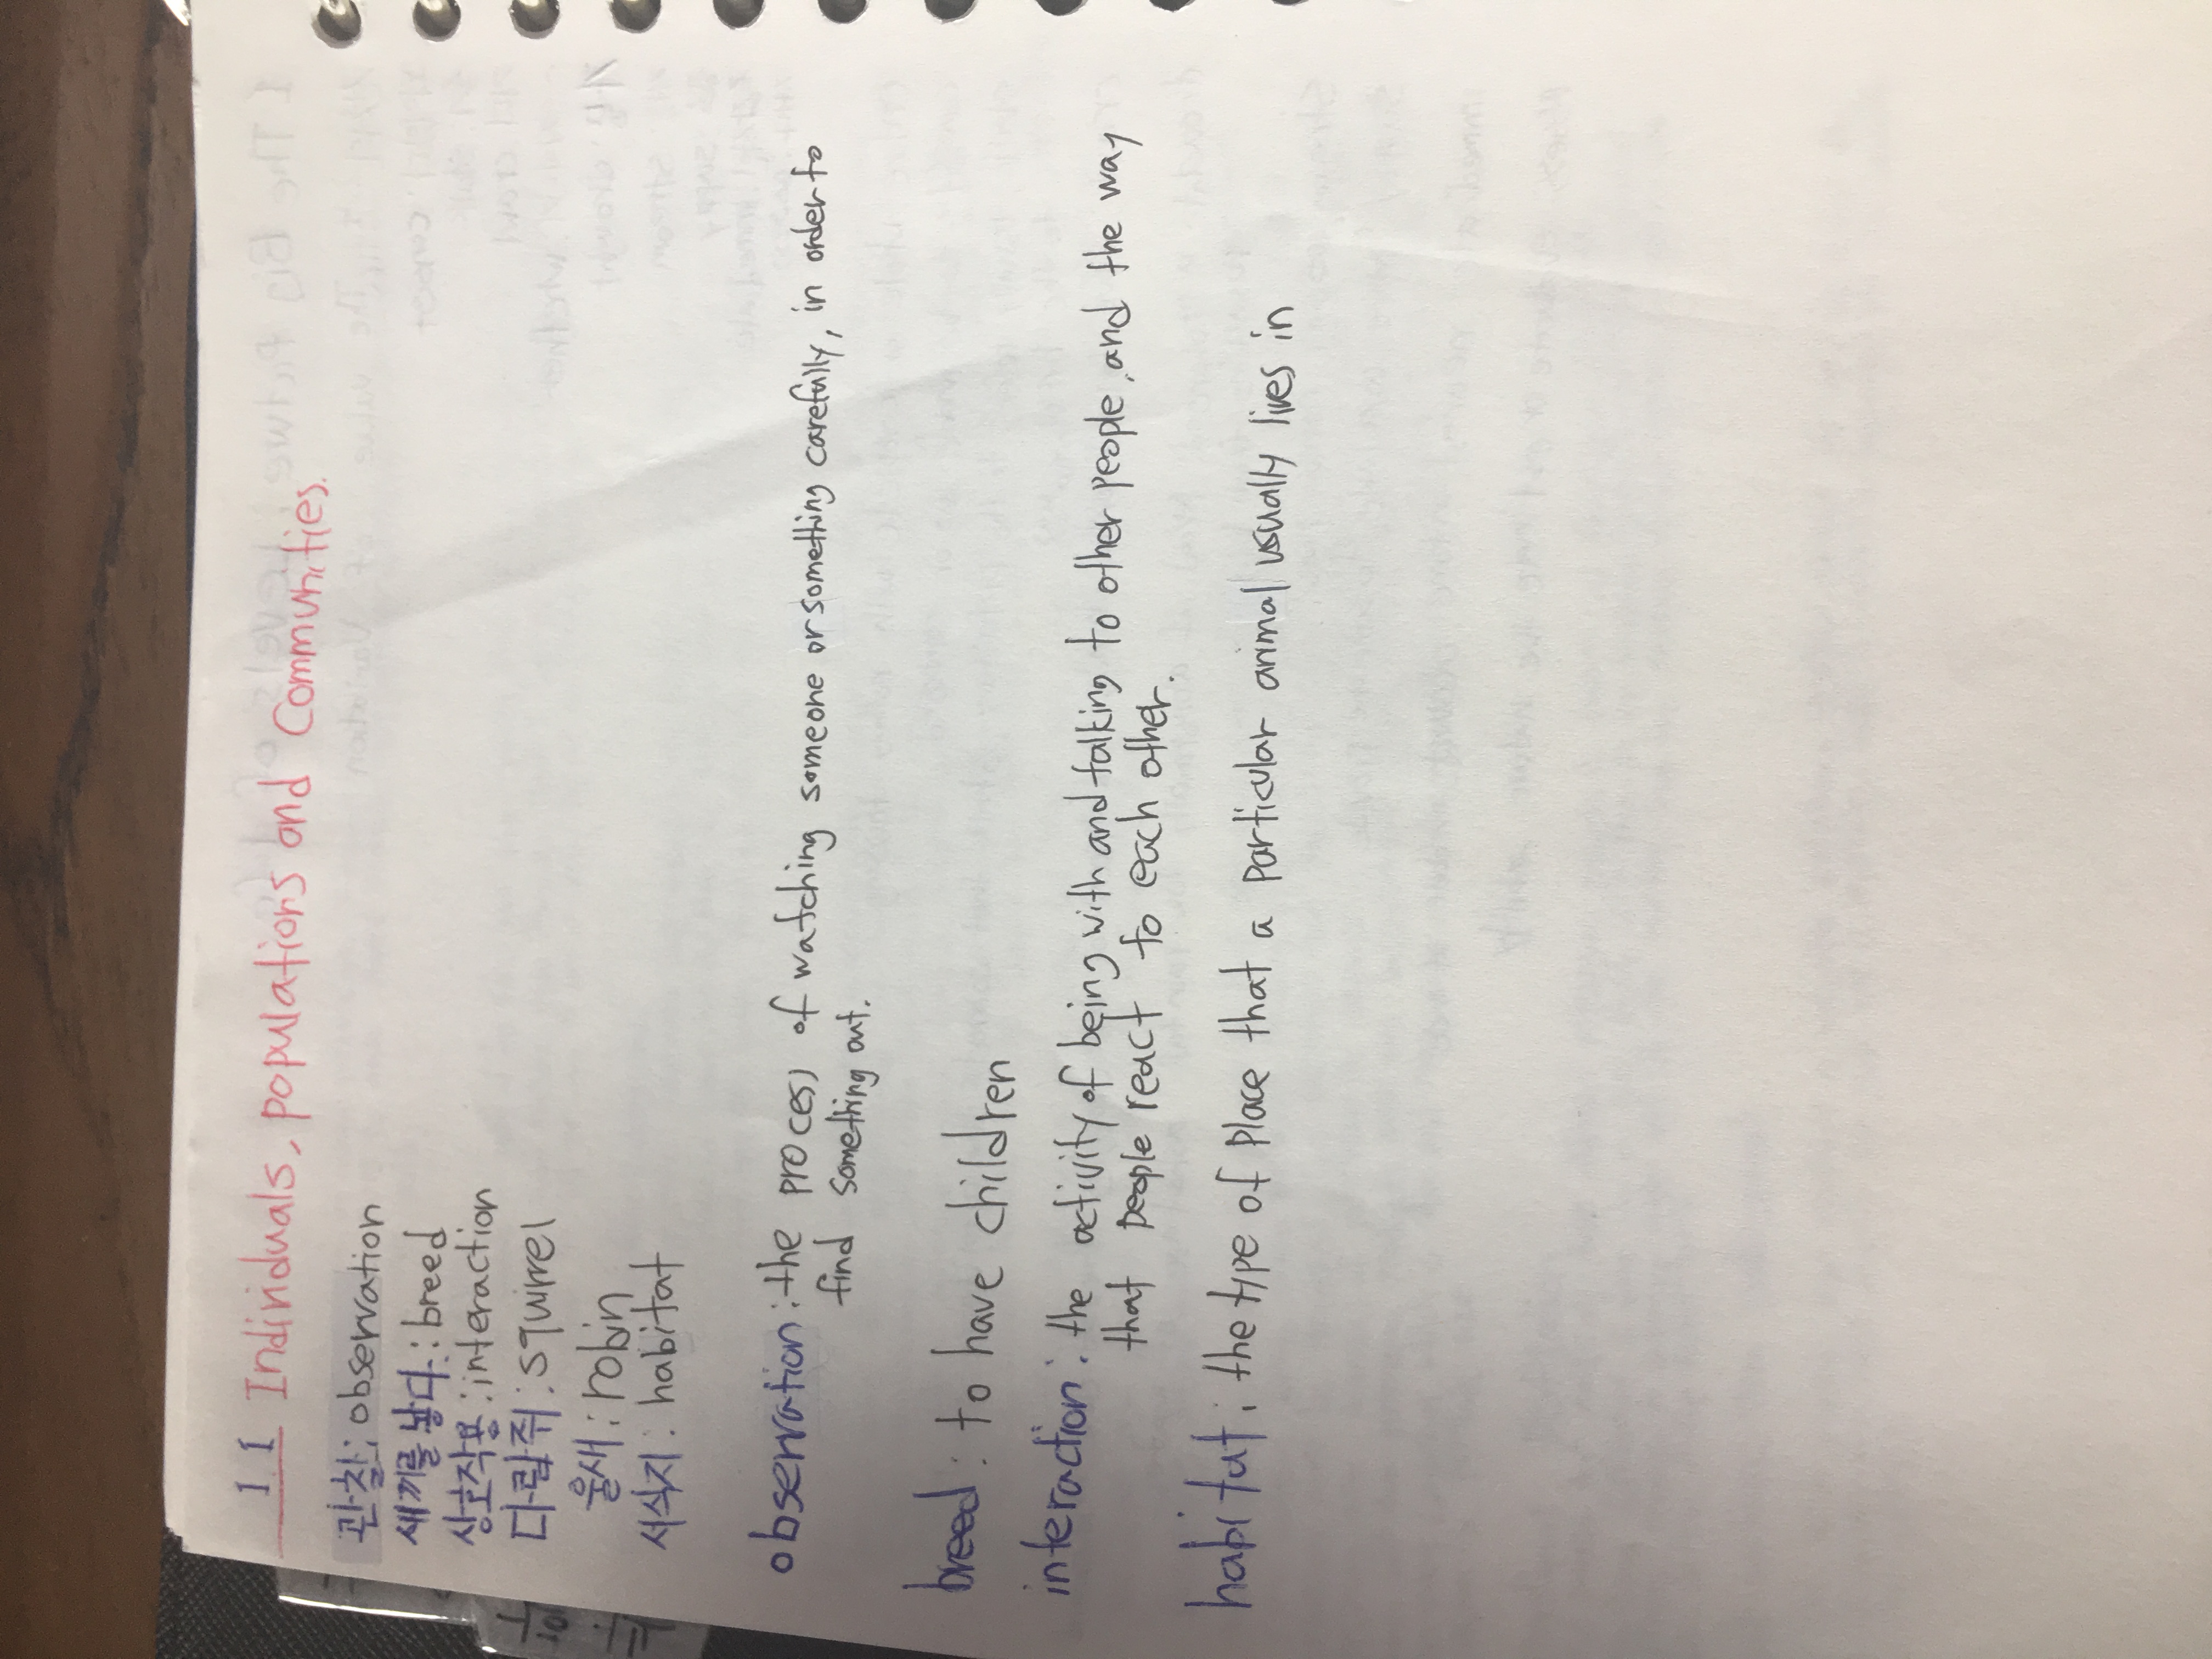 1.1 Individuals, populations and Communities.
관찰: observation
새끼를 낳다: breed
상호작용: interaction
다람쥐: squirrel
울새: robin
서식지: habitat
observation: the process of watching someone or something carefully, in order to
find something out.
breed: to have children
interaction: the activity of being with and talking to other people, and the way
that people react to each other.
habitat: the type of place that a particular animal usually lives in